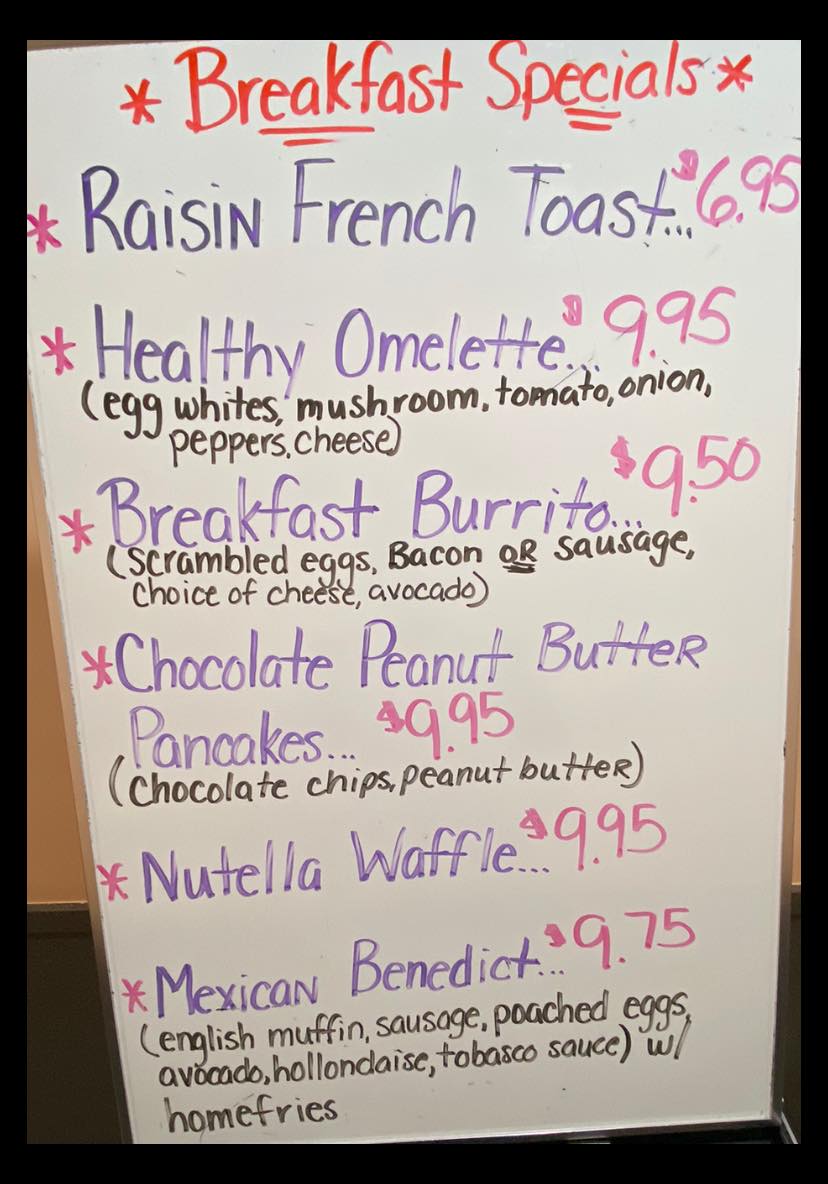 * Breakfast Specials *
* Raisin French Toast... $6.95
* Healthy Omelette... $9.95
(egg whites, mushroom, tomato, onion,
peppers, cheese)
* Breakfast Burrito... $9.50
(scrambled eggs, Bacon OR sausage,
choice of cheese, avocado)
* Chocolate Peanut Butter
Pancakes... $9.95
(chocolate chips, peanut butter)
* Nutella Waffle... $9.95
* Mexican Benedict... $9.75
(english muffin, sausage, poached eggs,
avocado, hollondaise, tobasco sauce) w/
homefries